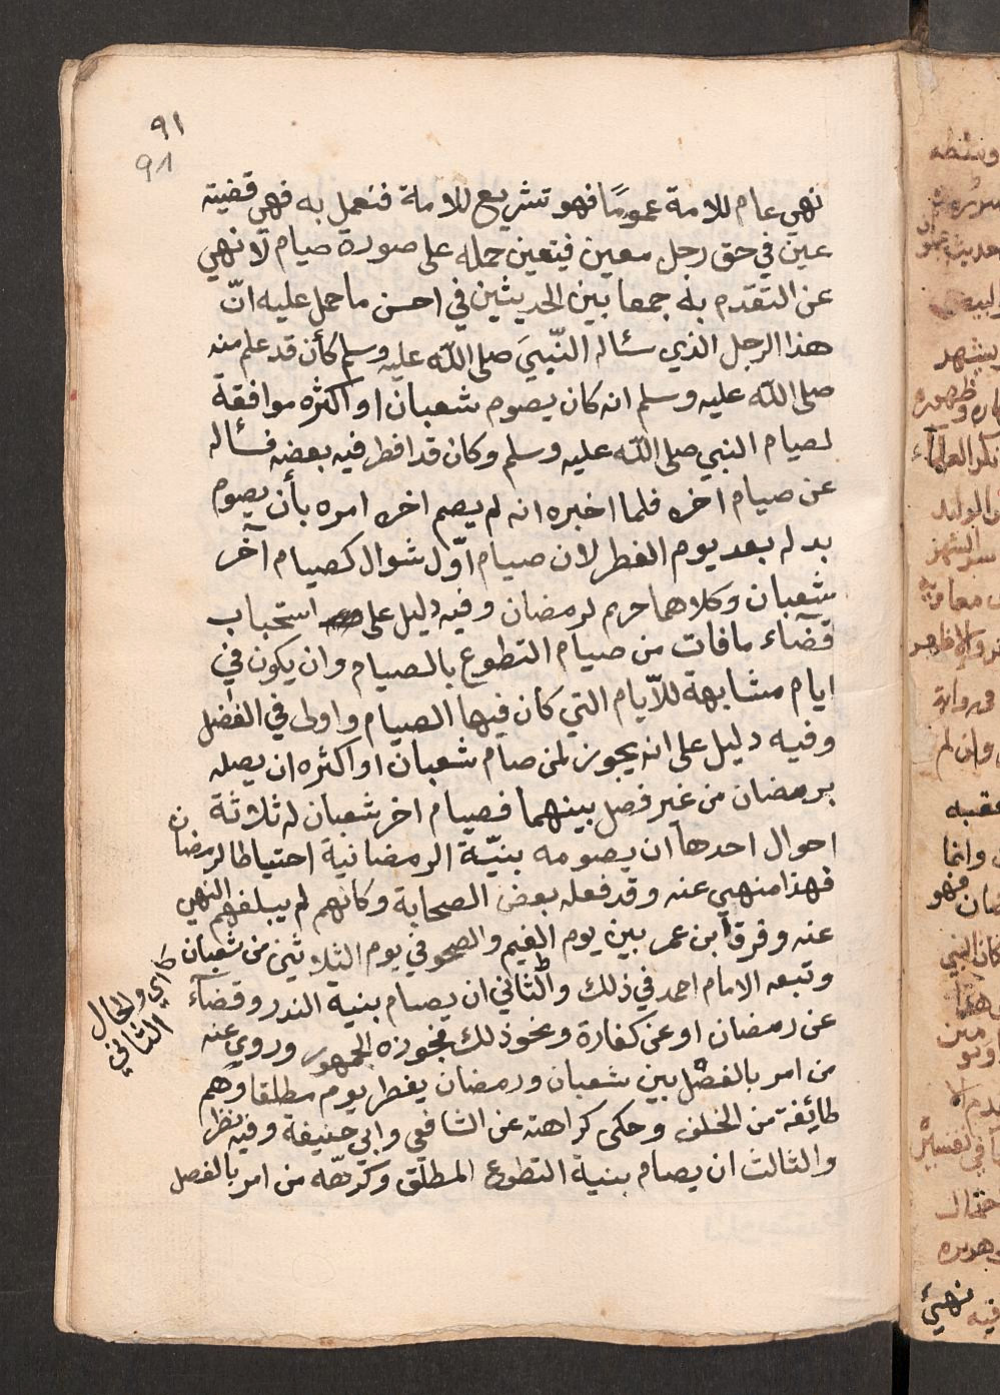 ٩١
91
نهي عام للامة عموما فهو تشريع للامة فنعمل به فهي قضيته
عين في حق رجل معين فيتعين حمله على صورة صيام لا نهي
عن التقدم به جمعا بين الحديثين في احسن ما حمل عليه انّ
هذا الرجل الذي سئاله النّبيَ صلى الله عليه وسلم كأن قد علم منه
صلى الله عليه وسلم انه كان يصوم شعبان او اكثره موافقة
لصيام النبي صلى الله عليه وسلم وكان قد افطر فيه بعضه فسئاله
عن صيام اخره فلما اخبره انه لم يصم اخره امره بأن يصوم
بدله بعد يوم الفطر لان صيام اوّل شوال كصيام آخر
شعبان وكلاهما حرم لرمضان وفيه دليل على استحباب
قضآء مافات من صيام التطوع بالصيام وان يكون في
ايام مشابهة للآيام التي كان فيها الصيام واولى في الفضل
وفيه دليل على انه يجوز لمن صام شعبان او اكثره ان يصله
برمضان من غير فصل بينهما فصيام اخر شعبان له ثلاثة
احوال احدها ان يصومه بنيّة الرمضانية احتياطا لرمضان
فهذا منهي عنه وقد فعله بعض الصحابة وكانهم لم يبلغهم النهي
عنه وفرق ابن عمر بين يوم الغيم والصحو في يوم الثلاثين من شعبان
وتبعه الامام احمد في ذلك والثاني ان يصام بنية الندر وقضآء
عن رمضان او عن كفارة ونحو ذلك فجوزه الجمهور وروي عنه
من امر بالفصل بين شعبان ورمضان يفطر يوم مطلقا وهم
طائفة من الخلف وحكى كراهته عن الشافعي وابي حنيفة وفيه نظر
والثالث ان يصام بنية التطوع المطلق وكرهه من امر بالفصل
والحال
الثاني